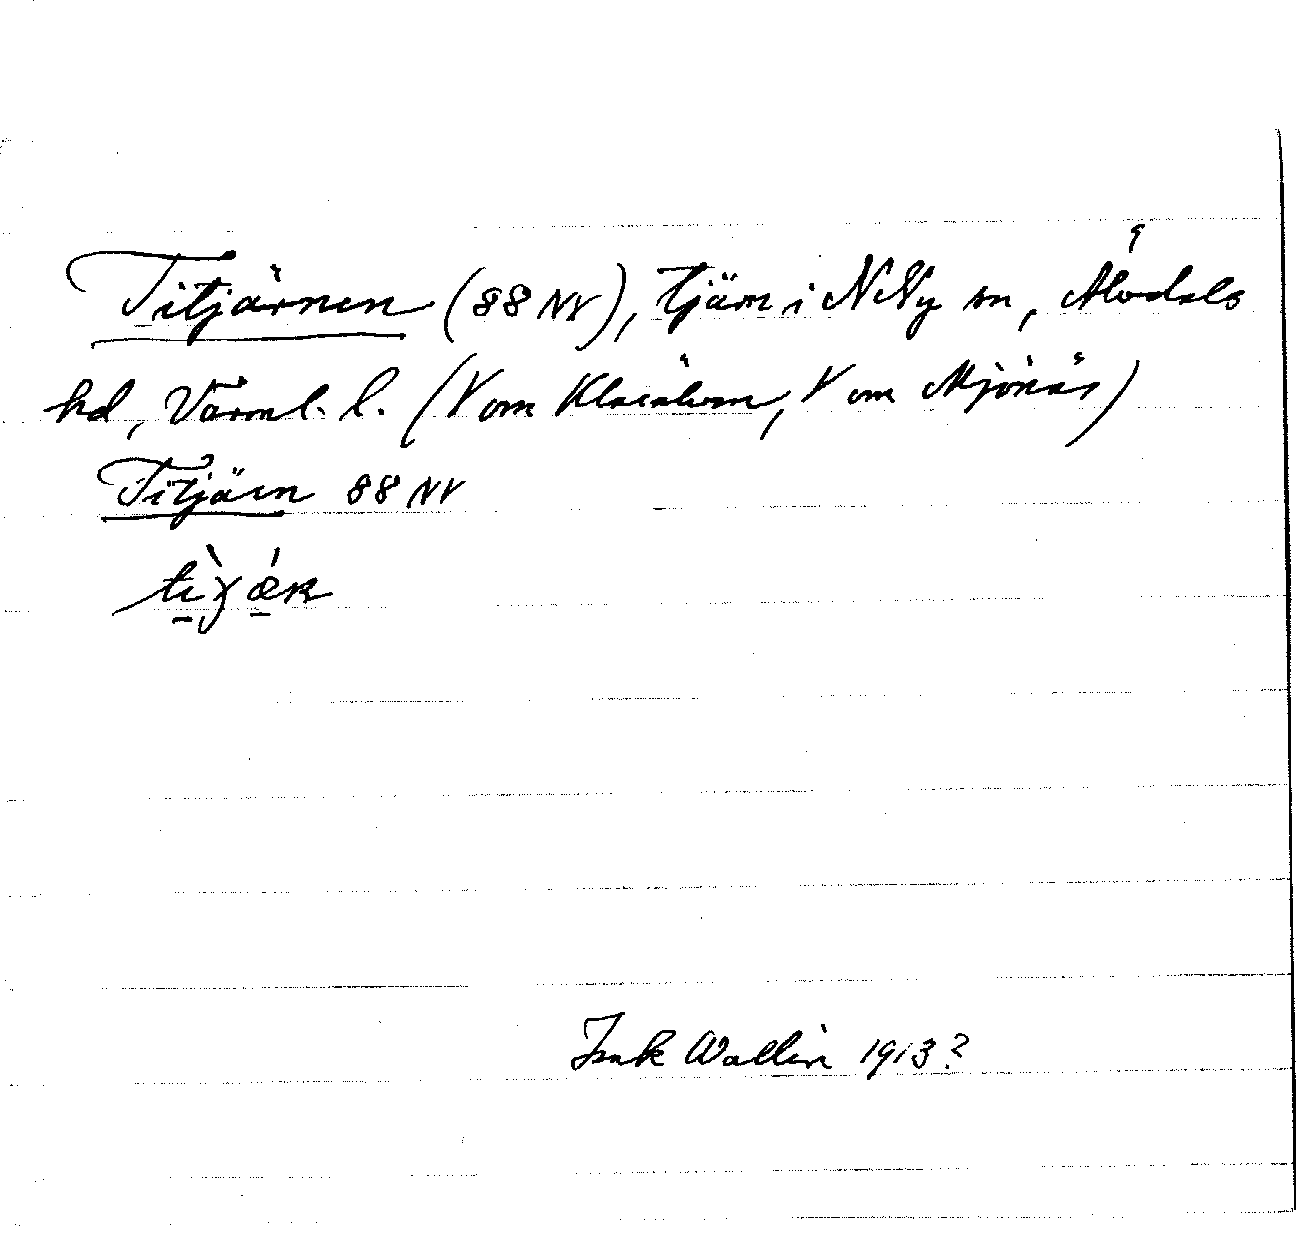 Titjärnen (88 NV), tjärn i N Ny sn, Älvdals
hd, Värml. l. (V om Klarälven, V om Mjönäs)
Titjärn 88 NV
Isak Wallin 1913?